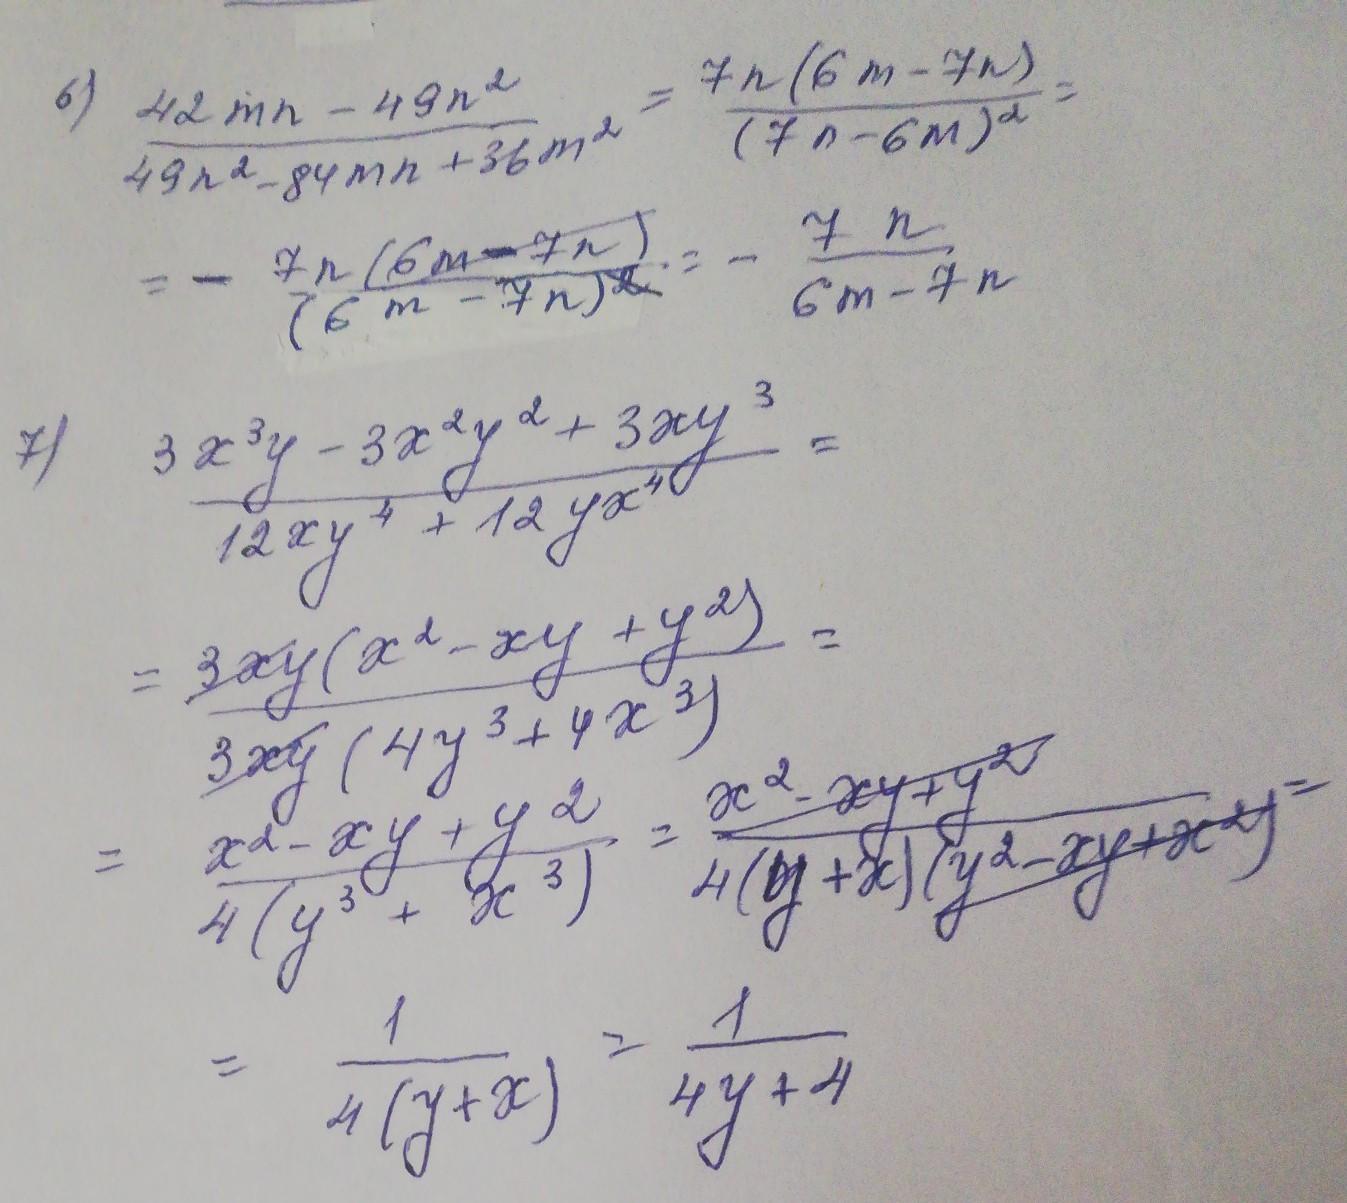 6) \frac{42mn - 49n^2}{49n^2 - 84mn + 36m^2} = \frac{7n(6m - 7n)}{(7n - 6m)^2} =
= - \frac{7n(6m - 7n)}{(6m - 7n)^2} = - \frac{7n}{6m - 7n}
7) \frac{3x^3y - 3x^2y^2 + 3xy^3}{12xy^4 + 12yx^4} =
= \frac{3xy(x^2 - xy + y^2)}{3xy(4y^3 + 4x^3)} =
= \frac{x^2 - xy + y^2}{4(y^3 + x^3)} = \frac{x^2 - xy + y^2}{4(y + x)(y^2 - xy + x^2)} =
= \frac{1}{4(y + x)} = \frac{1}{4y + 4}